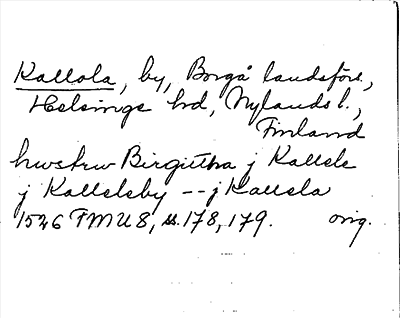 Kallola, by, Borgå landsförs.,
Helsinge hd, Nylands l.,
Finland
hwstrw Birgittha j Kallele
j Kallelsby -- j Kallela
1526 FMU 8, ss. 178, 179. orig.